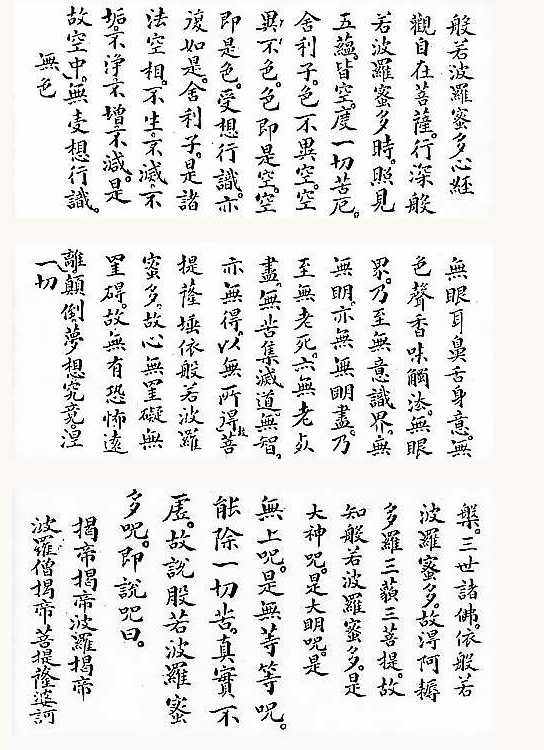 般若波羅蜜多心経
觀自在菩薩。行深般
若波羅蜜多時。照見
五蘊。皆空。度一切苦厄。
舍利子。色不異空。空
異不色。色即是空。空
即是色。受想行識。亦
復如是。舍利子。是諸
法空相。不生不滅。不
垢不淨。不增不減。是
故空中。無受想行識。
無色
無眼耳鼻舌身意。無
色聲香味觸法。無眼
界。乃至無意識界。無
無明。亦無無明盡。乃
至無老死。亦無老死
盡。無苦集滅道。無智。
亦無得。以無所得故菩
提薩埵依般若波羅
蜜多。故心無罣礙無
罣碍。故無有恐怖遠
離顛倒夢想究竟。涅
一切
槃。三世諸佛。依般若
波羅蜜多。故得阿耨
多羅三藐三菩提。故
知般若波羅蜜多。是
大神呪。是大明呪。是
無上呪。是無等等呪。
能除一切苦。真實不
虛。故說般若波羅蜜
多呪。即說呪曰。
揭帝揭帝波羅揭帝
波羅僧揭帝菩提薩婆訶